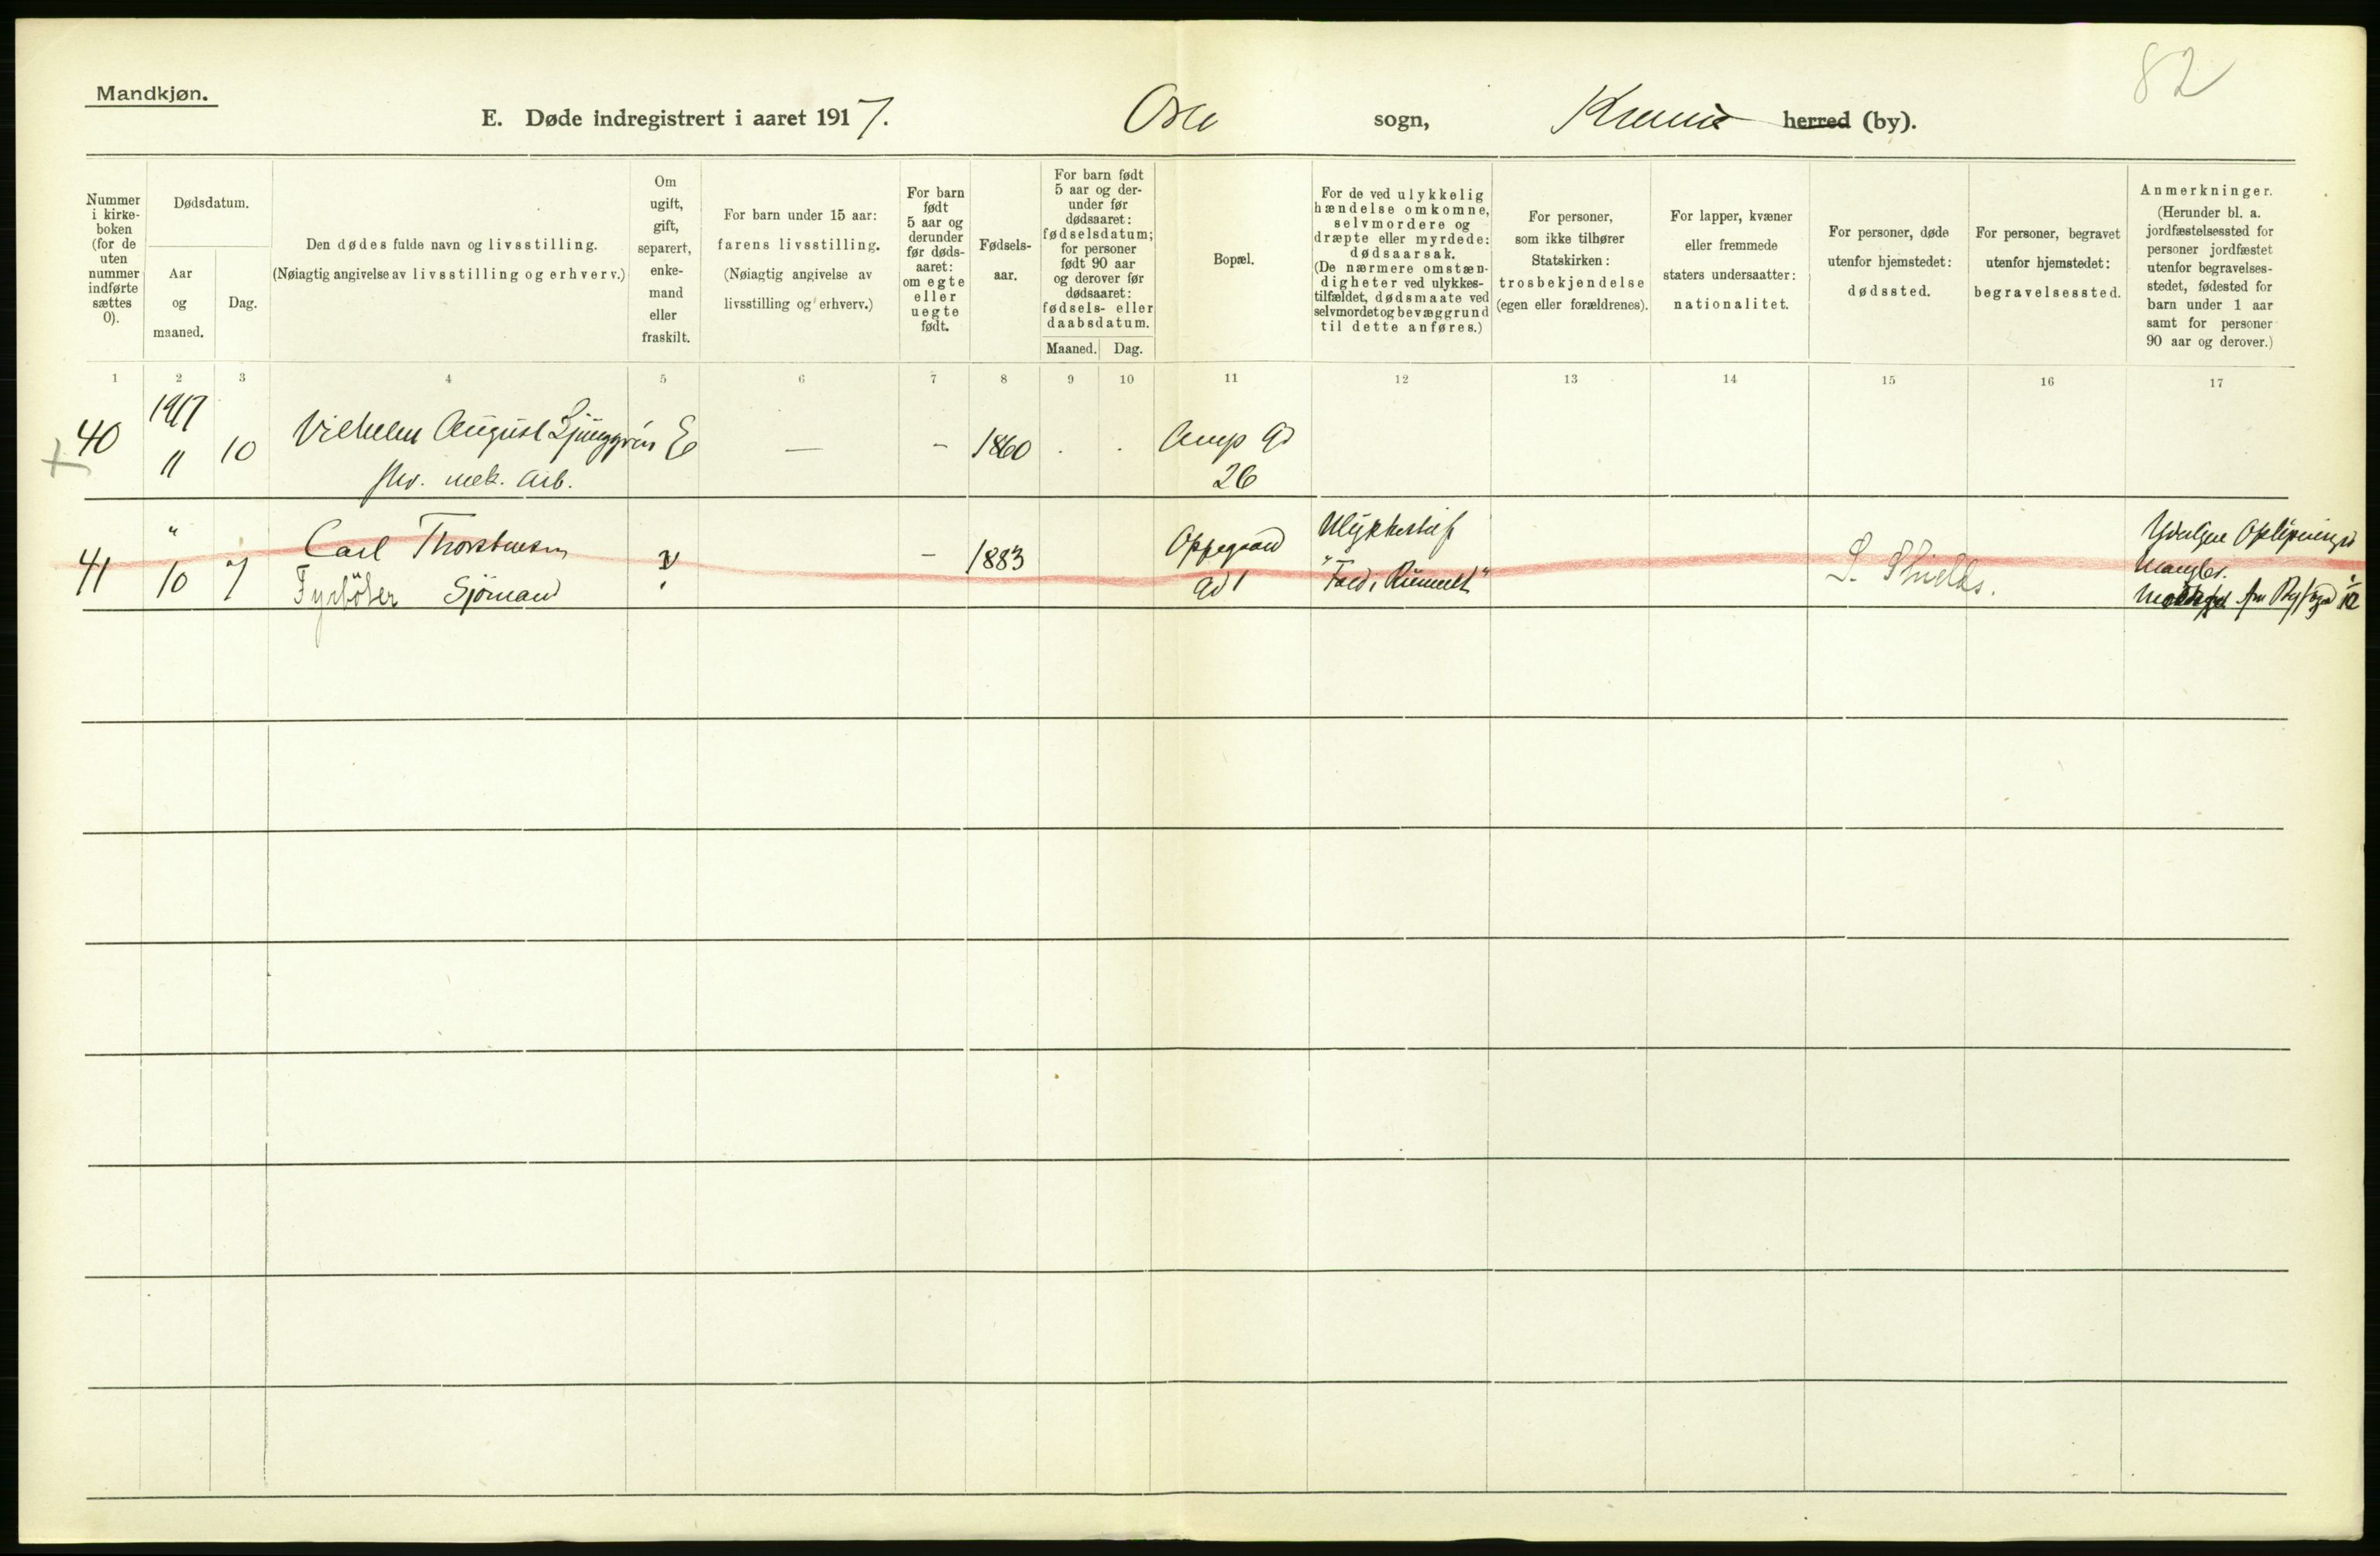 82
Mandkjøn.
E. Døde indregistrert i aaret 1917. Oslo sogn, Krania herred (by).
Nummer i kirke-boken (for de uten nummer indførte sættes 0).
Dødsdatum.
Aar og maaned.
Dag.
Den dødes fulde navn og livsstilling.
(Nøiagtig angivelse av livsstilling og erhverv.)
Om ugift, gift, separert, enke-mand eller fraskilt.
For barn under 15 aar:
farens livsstilling.
(Nøiagtig angivelse av livsstilling og erhverv.)
For barn født 5 aar og derunder før døds-aaret: om egte eller uegte født.
Fødsels-aar.
For barn født 5 aar og der-under før dødsaaret: fødselsdatum; for personer født 90 aar og derover før dødsaaret: fødsels- eller daabsdatum.
Maaned. Dag.
Bopæl.
For de ved ulykkelig hændelse omkomne, selvmordere og dræpte eller myrdede: dødsaarsak.
(De nærmere omstæn-digheter ved ulykkes-tilfældet, dødsmaate ved selvmordet og bevæggrund til dette anføres.)
For personer, som ikke tilhører Statskirken: trosbekjendelse (egen eller forældrenes).
For lapper, kvæner eller fremmede staters undersaatter: nationalitet.
For personer, døde utenfor hjemstedet: dødssted.
For personer, begravet utenfor hjemstedet: begravelsessted.
Anmerkninger.
(Herunder bl. a. jordfæstelsessted for personer jordfæstet utenfor begravelses-stedet, fødested for barn under 1 aar samt for personer 90 aar og derover.)
1 2 3 4 5 6 7 8 9 10 11 12 13 14 15 16 17
1917
40 11 10 Vilhelm August Ljunggrén E — - 1860 . .
mek. Arb. 26
41 " 10 7 Carl Thorstensen - 1883 Oppegaard
Fyrbøter Sjømand gd 1
S. Shields.
Mangler.